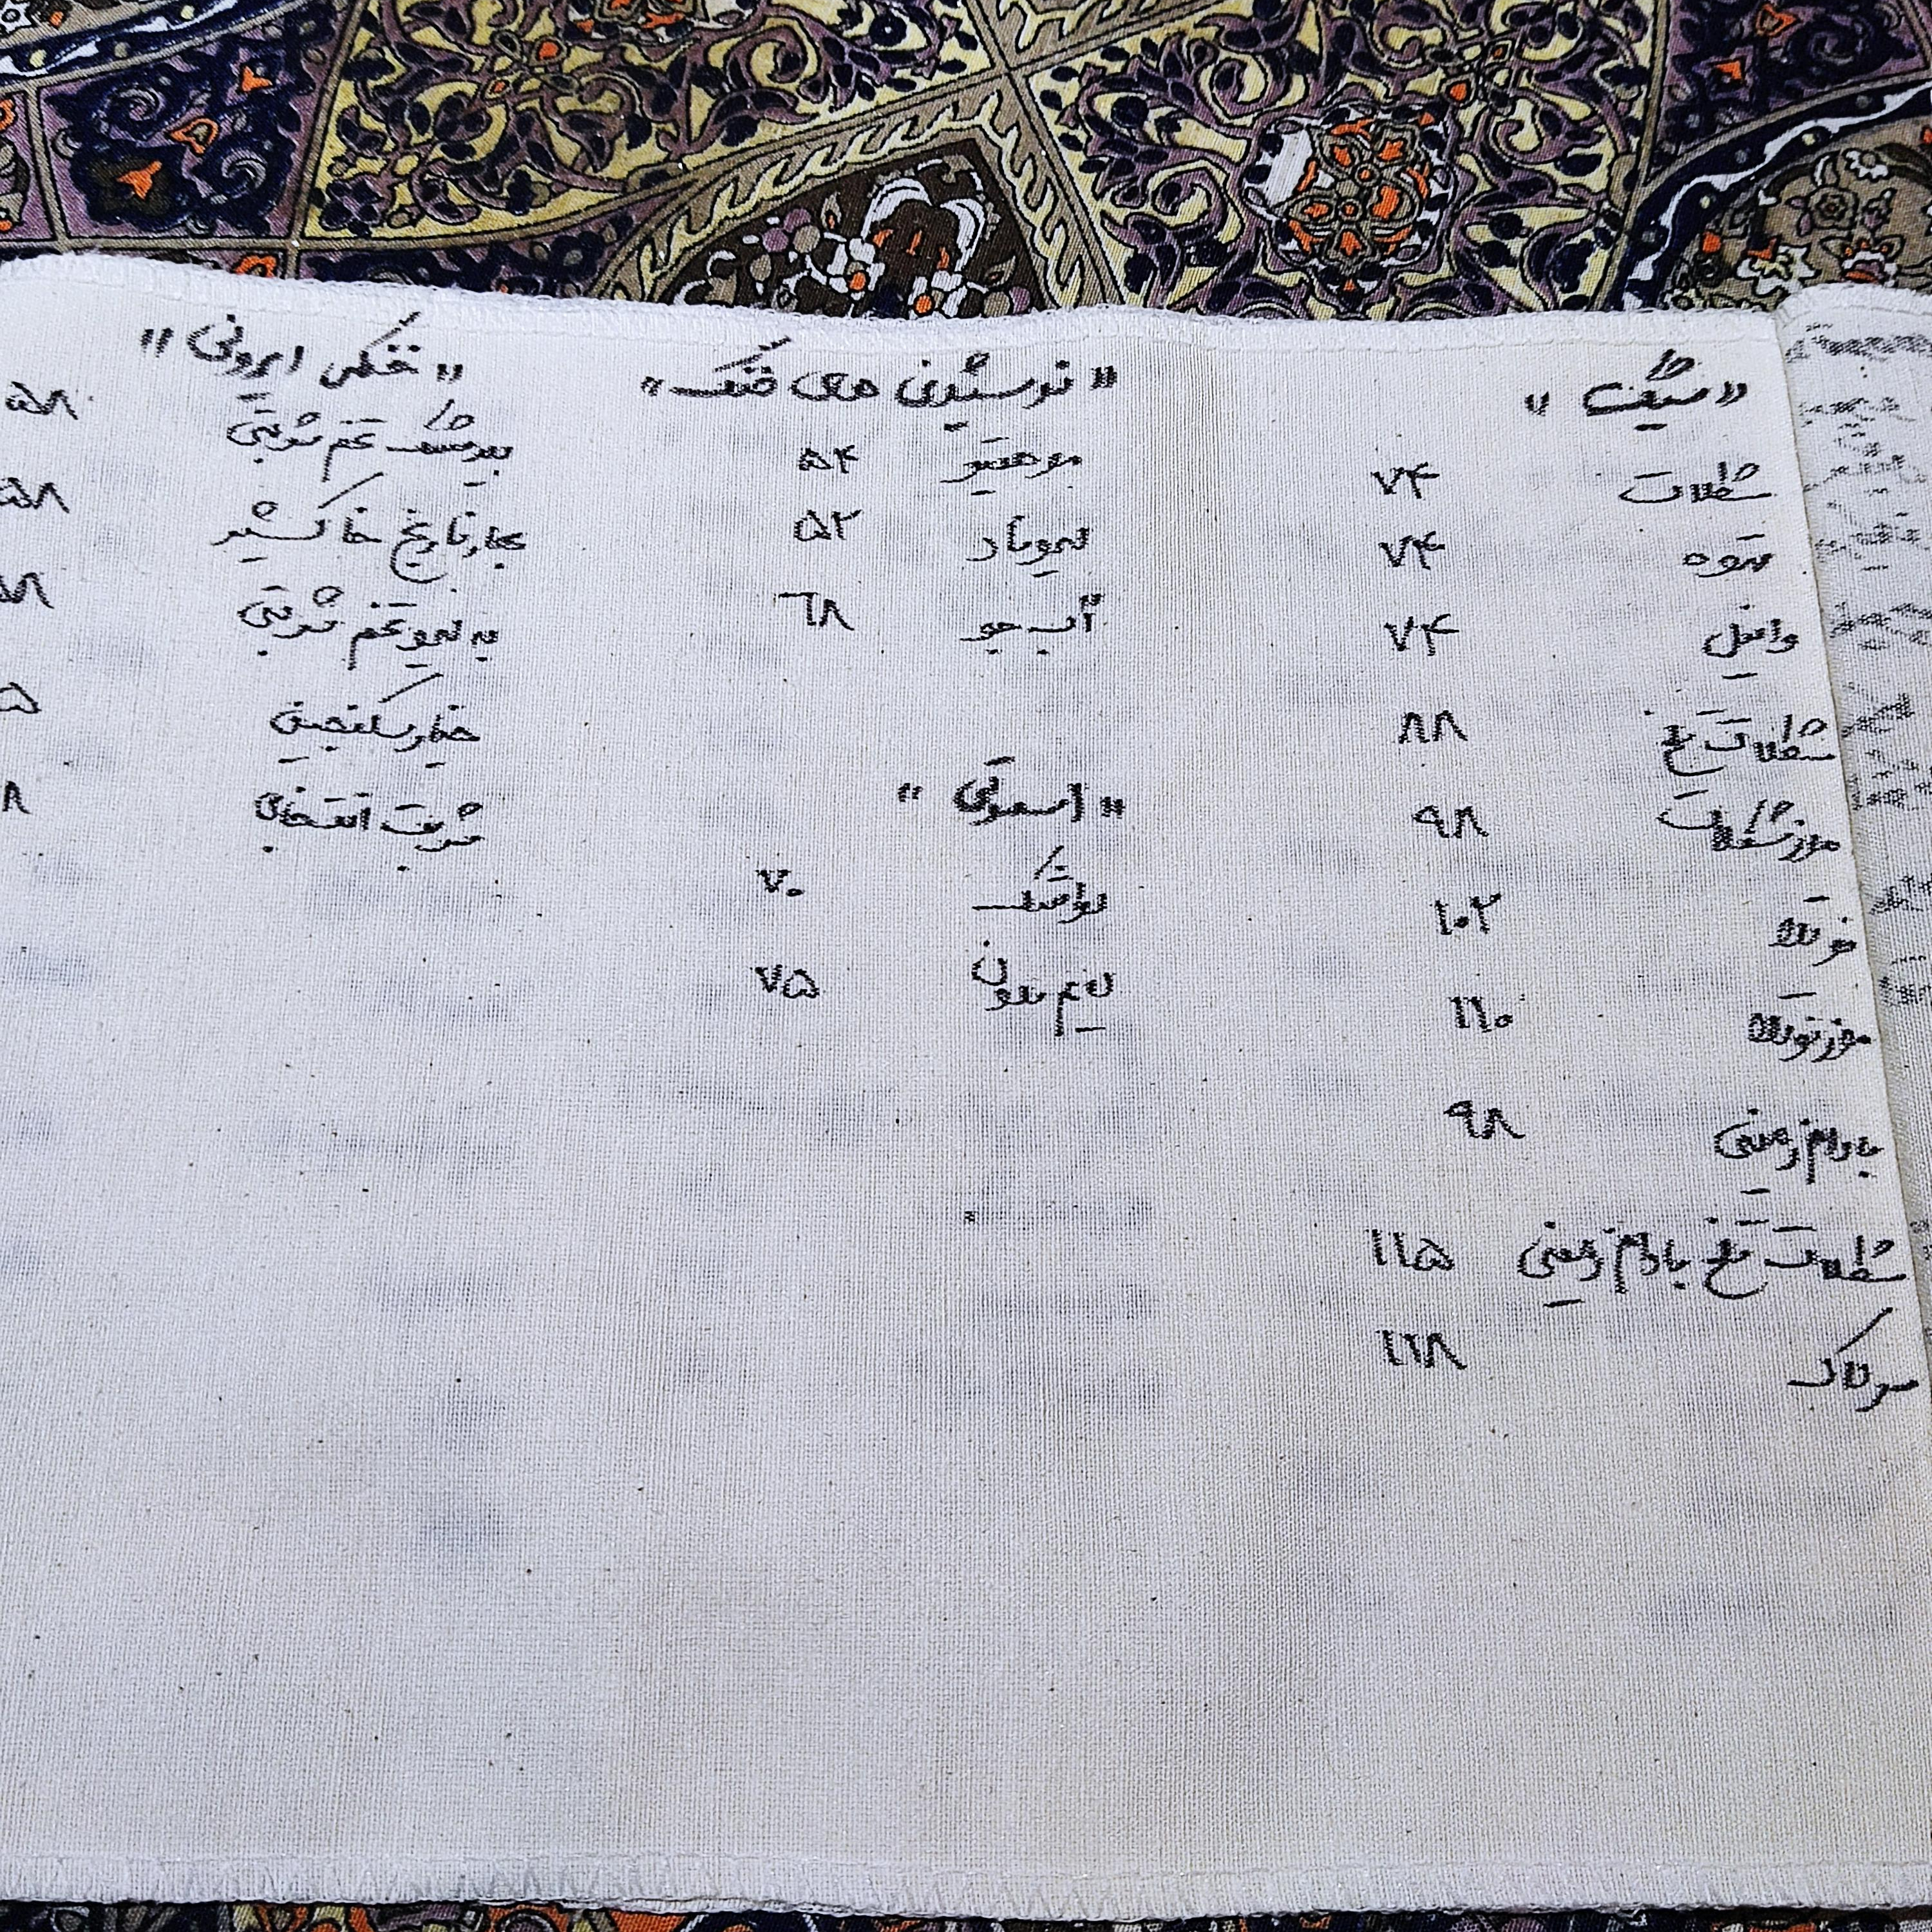 « شیک »
شکلات ۷۴
قهوه ۷۴
وانیل ۷۴
شکلات تلخ ۸۸
موز شکلات ۹۸
نوتلا ۱۰۲
موز نوتلا ۱۱۰
بادام زمینی ۹۸
شکلات تلخ بادام زمینی ۱۱۵
سرلاک ۱۱۸
« نوشیدنی های خنک »
موهیتو ۵۴
لیموناد ۵۲
آب جو ۶۸
« اسموتی »
لواشک ۷۰
لایم ملون ۷۵
« خنکی ایرونی »
بیدمشک تخم شربتی ۵۸
بهارنارنج خاکشیر ۵۸
به لیمو تخم شربتی
خیار سکنجبین
شربت انتخابی